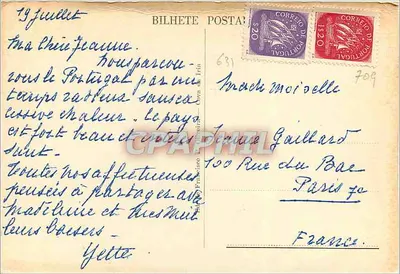 BILHETE POSTAL
19 Juillet
Ma Chère Jeanne.
Nous parcou-
rons le Portugal par un
temps radieux sans ex-
cessive chaleur. Le pays
est fort beau et intéres
sant.
Toutes nos affectueuses
pensées à partager avec
Madeleine et mes meil
leurs baisers.
Yette
CORREIO DE PORTUGAL
$20
CORREIO DE PORTUGAL
1$20
631
709
Mademoiselle
Jeanne Gaillard
100 Rue du Bac
Paris 7e
France.
CPAPHIL